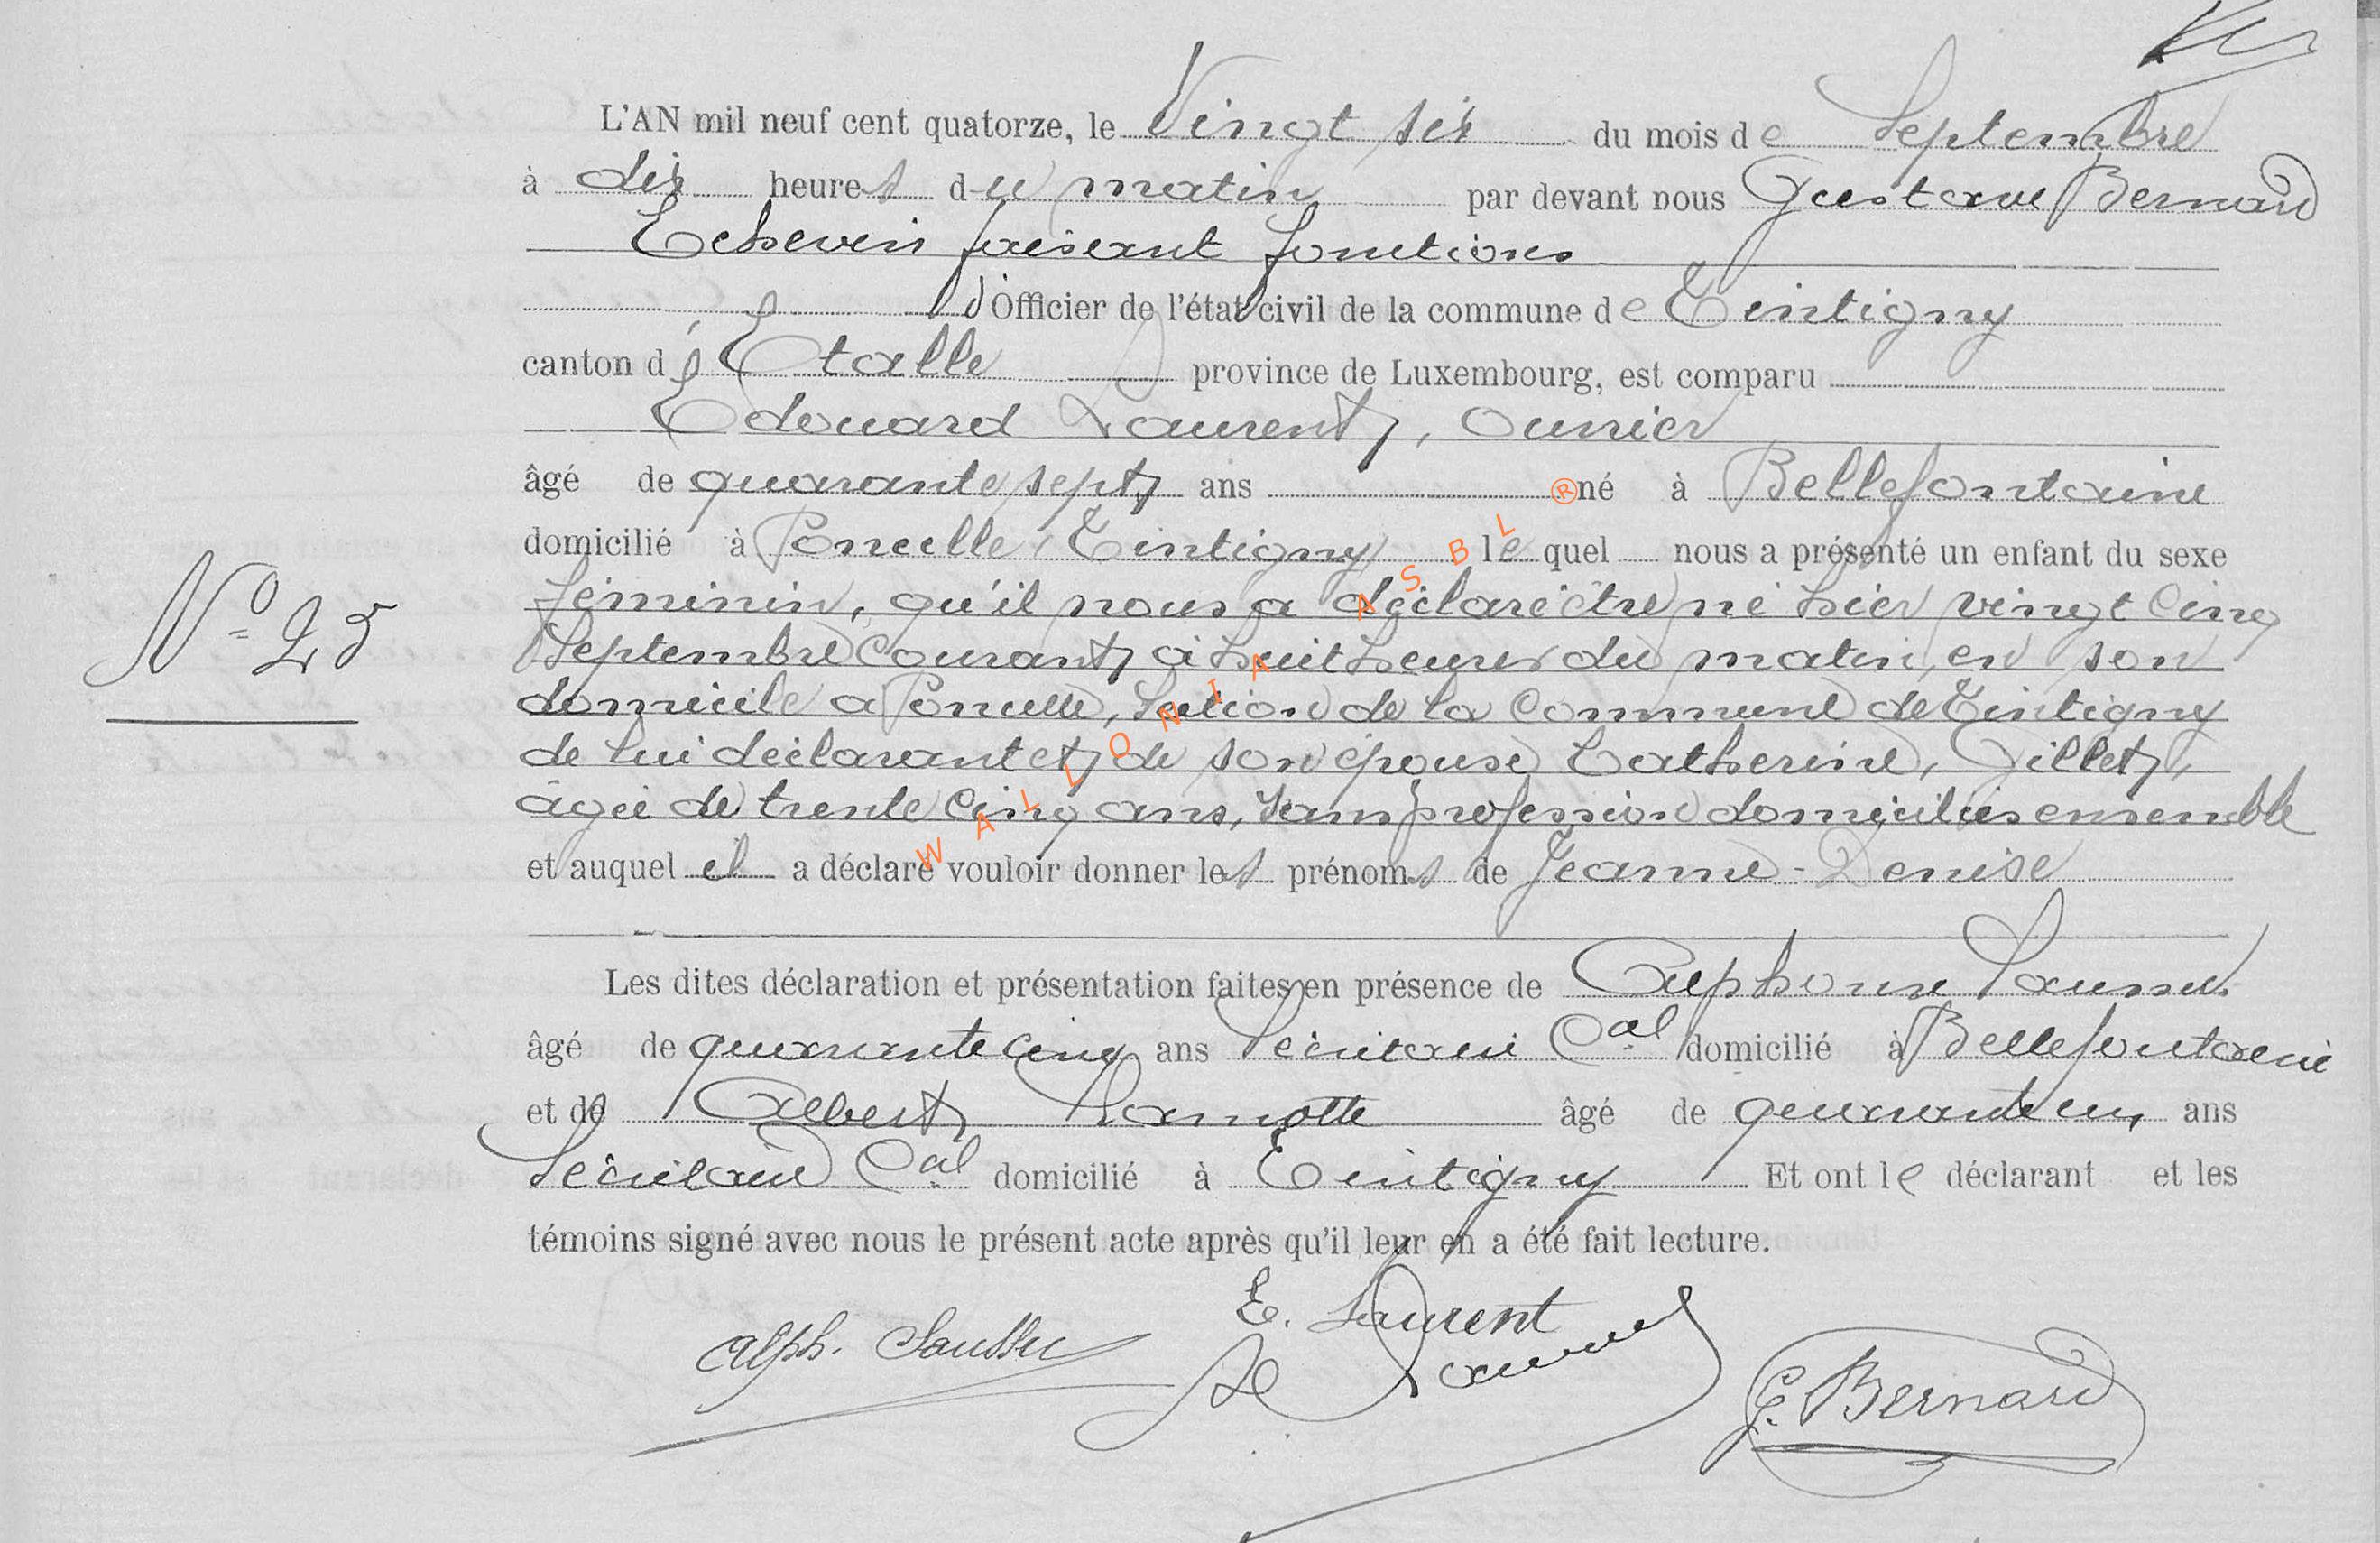 L'AN mil neuf cent quatorze, le Vingt six du mois de Septembre
à dix heures du matin par devant nous Gustave Bernard
Echevin faisant fonctions
d'Officier de l'état civil de la commune de Tintigny
canton d'Étalle province de Luxembourg, est comparu
Edouard Laurent, ouvrier
âgé de quarante sept ans né à Bellefontaine
domicilié à Poncelle, Tintigny lequel nous a présenté un enfant du sexe
féminin, qu'il nous a déclaré être né hier vingt cinq
Nº 25
Septembre courant, à huit heures du matin, en son
domicile à Poncelle, Section de la Commune de Tintigny
de lui déclarant et de son épouse Catherine, Gillet,
âgée de trente cinq ans, sans profession domiciliés ensemble
et auquel il a déclaré vouloir donner les prénoms de Jeanne-Denise
Les dites déclaration et présentation faites en présence de Alphonse Saussu
âgé de quarante cinq ans Secrétaire Cal domicilié à Bellefontaine
et de Albert Lamotte âgé de quarante un ans
Secrétaire Cal domicilié à Tintigny Et ont le déclarant et les
témoins signé avec nous le présent acte après qu'il leur en a été fait lecture.
E. Laurent
Alph. Saussu
G. Bernard
WALLONIA ASBL ®